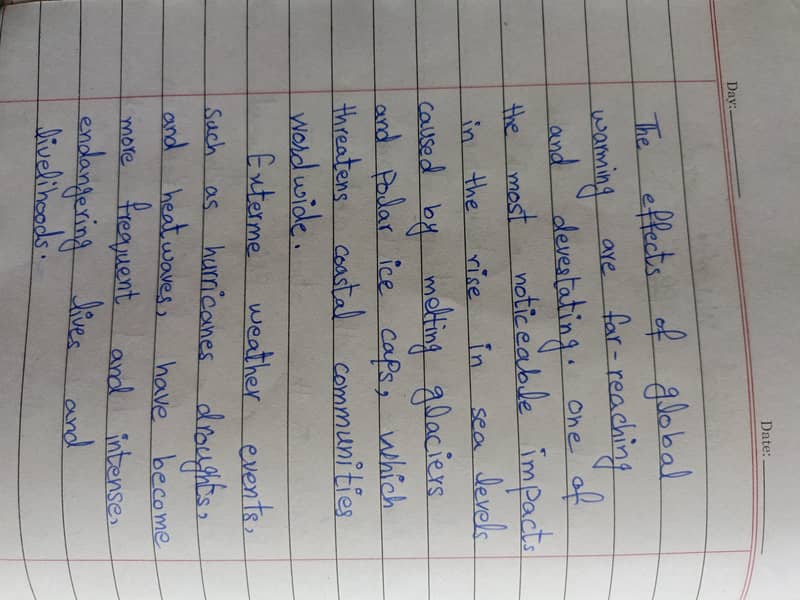 Day: Date:
The effects of global
warming are far-reaching
and devestating. one of
the most noticeable impacts
in the rise in sea levels
caused by melting glaciers
and Polar ice caps, which
threatens coastal communities
worldwide.
Exterme weather events,
such as hurricanes droughts,
and heatwaves, have become
more frequent and intense,
endangering lives and
livelihoods.